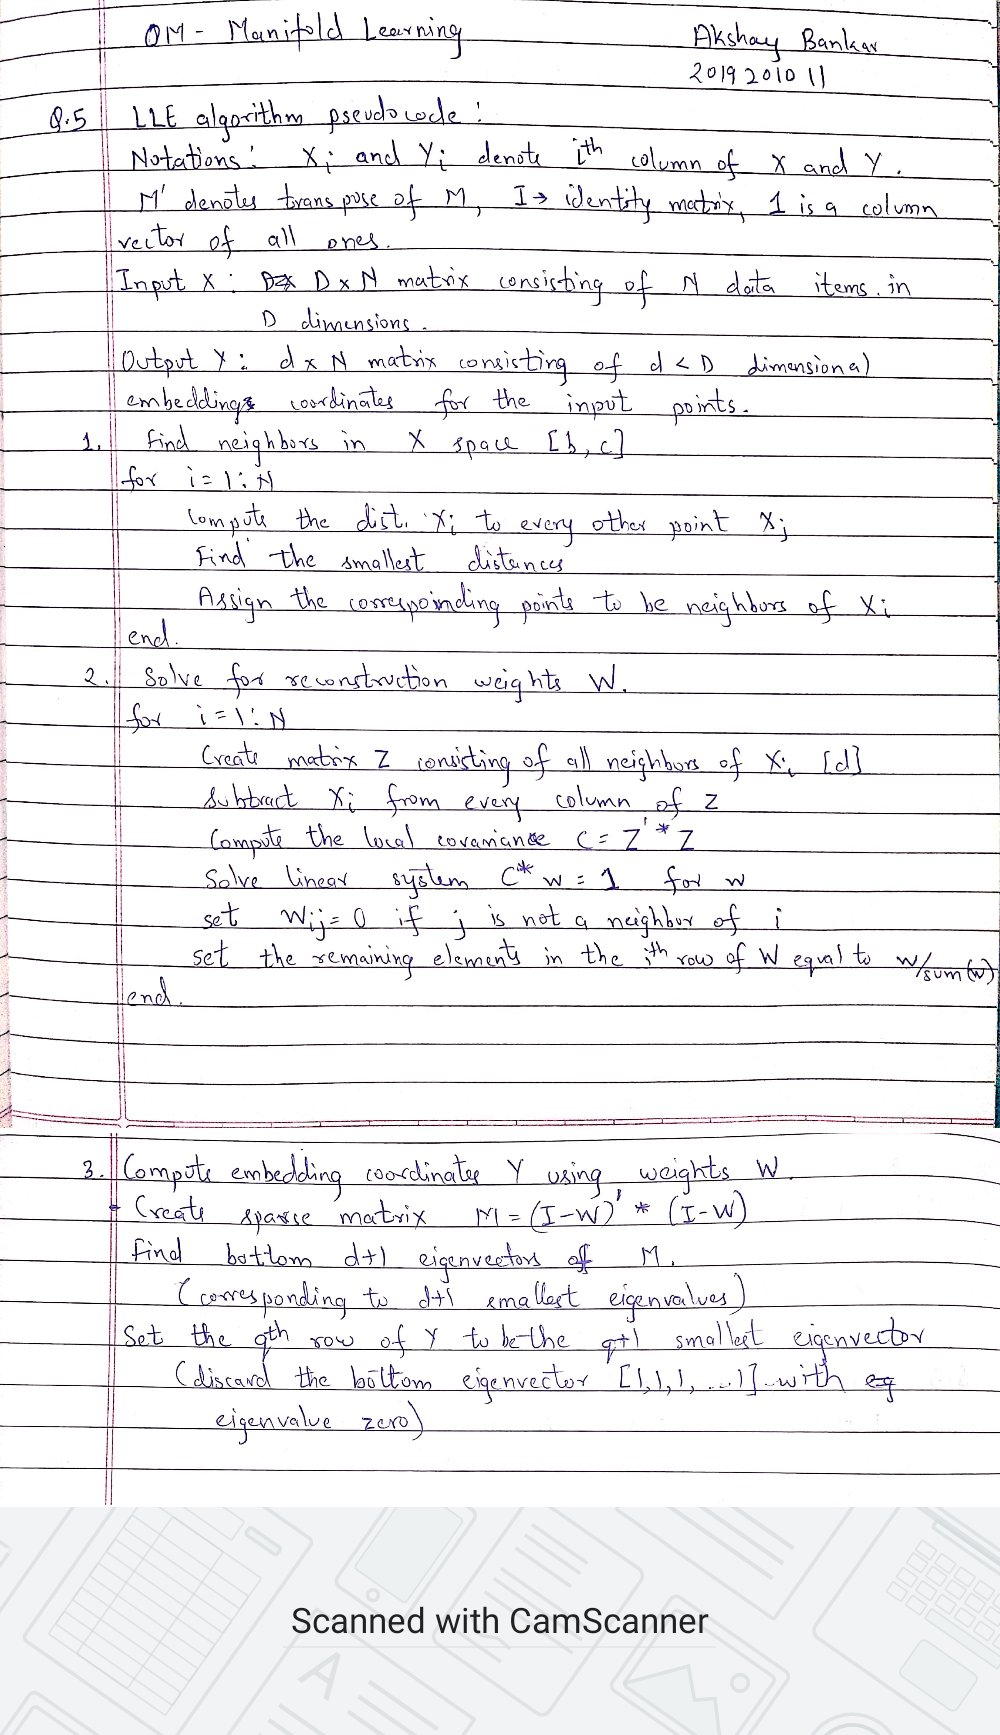 OM - Manifold Learning
Akshay Bankar
2019201011
Q.5 LLE algorithm pseudocode :
Notations : Xi and Yi denote ith column of X and Y.
M' denotes transpose of M, I → identity matrix, 1 is a column
vector of all ones.
Input X : D x N matrix consisting of N data items. in
D dimensions.
Output Y : d x N matrix consisting of d < D dimensional
embedding coordinates for the input points.
1. Find neighbors in X space [b, c]
for i = 1 : N
Compute the dist. Xi to every other point Xj
Find the smallest distances
Assign the correspoinding points to be neighbors of Xi
end.
2. Solve for reconstruction weights W.
for i = 1 : N
Create matrix Z consisting of all neighbors of Xi [d]
Subtract Xi from every column of Z
Compute the local covariance C = Z' * Z
Solve linear system C * w = 1 for w
set Wij = 0 if j is not a neighbor of i
set the remaining elements in the ith row of W equal to w/sum(w)
end.
3. Compute embedding coordinates Y using weights W.
- Create sparse matrix M = (I-W)' * (I-W)
Find bottom d+1 eigenvectors of M.
(corresponding to d+1 smallest eigenvalues)
Set the qth row of Y to be the q+1 smallest eigenvector
(discard the bottom eigenvector [1,1,1, ...1] with
eigenvalue zero)
Scanned with CamScanner